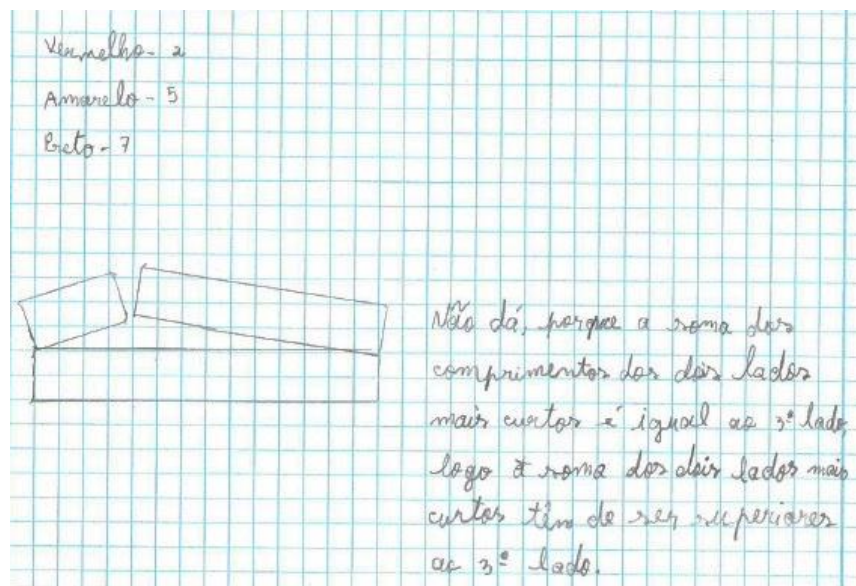 Vermelho - 2
Amarelo - 5
Preto - 7
Não dá, porque a soma dos
comprimentos dos dois lados
mais curtos é igual ao 3º lado,
logo a soma dos dois lados mais
curtos têm de ser superiores
ao 3º lado.